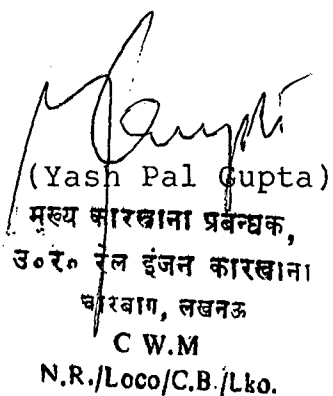 (Yash Pal Gupta)
मुख्य कारखाना प्रबन्धक,
उ०रे० रेल इंजन कारखाना
चारबाग, लखनऊ
C W.M
N.R./Loco/C.B./Lko.